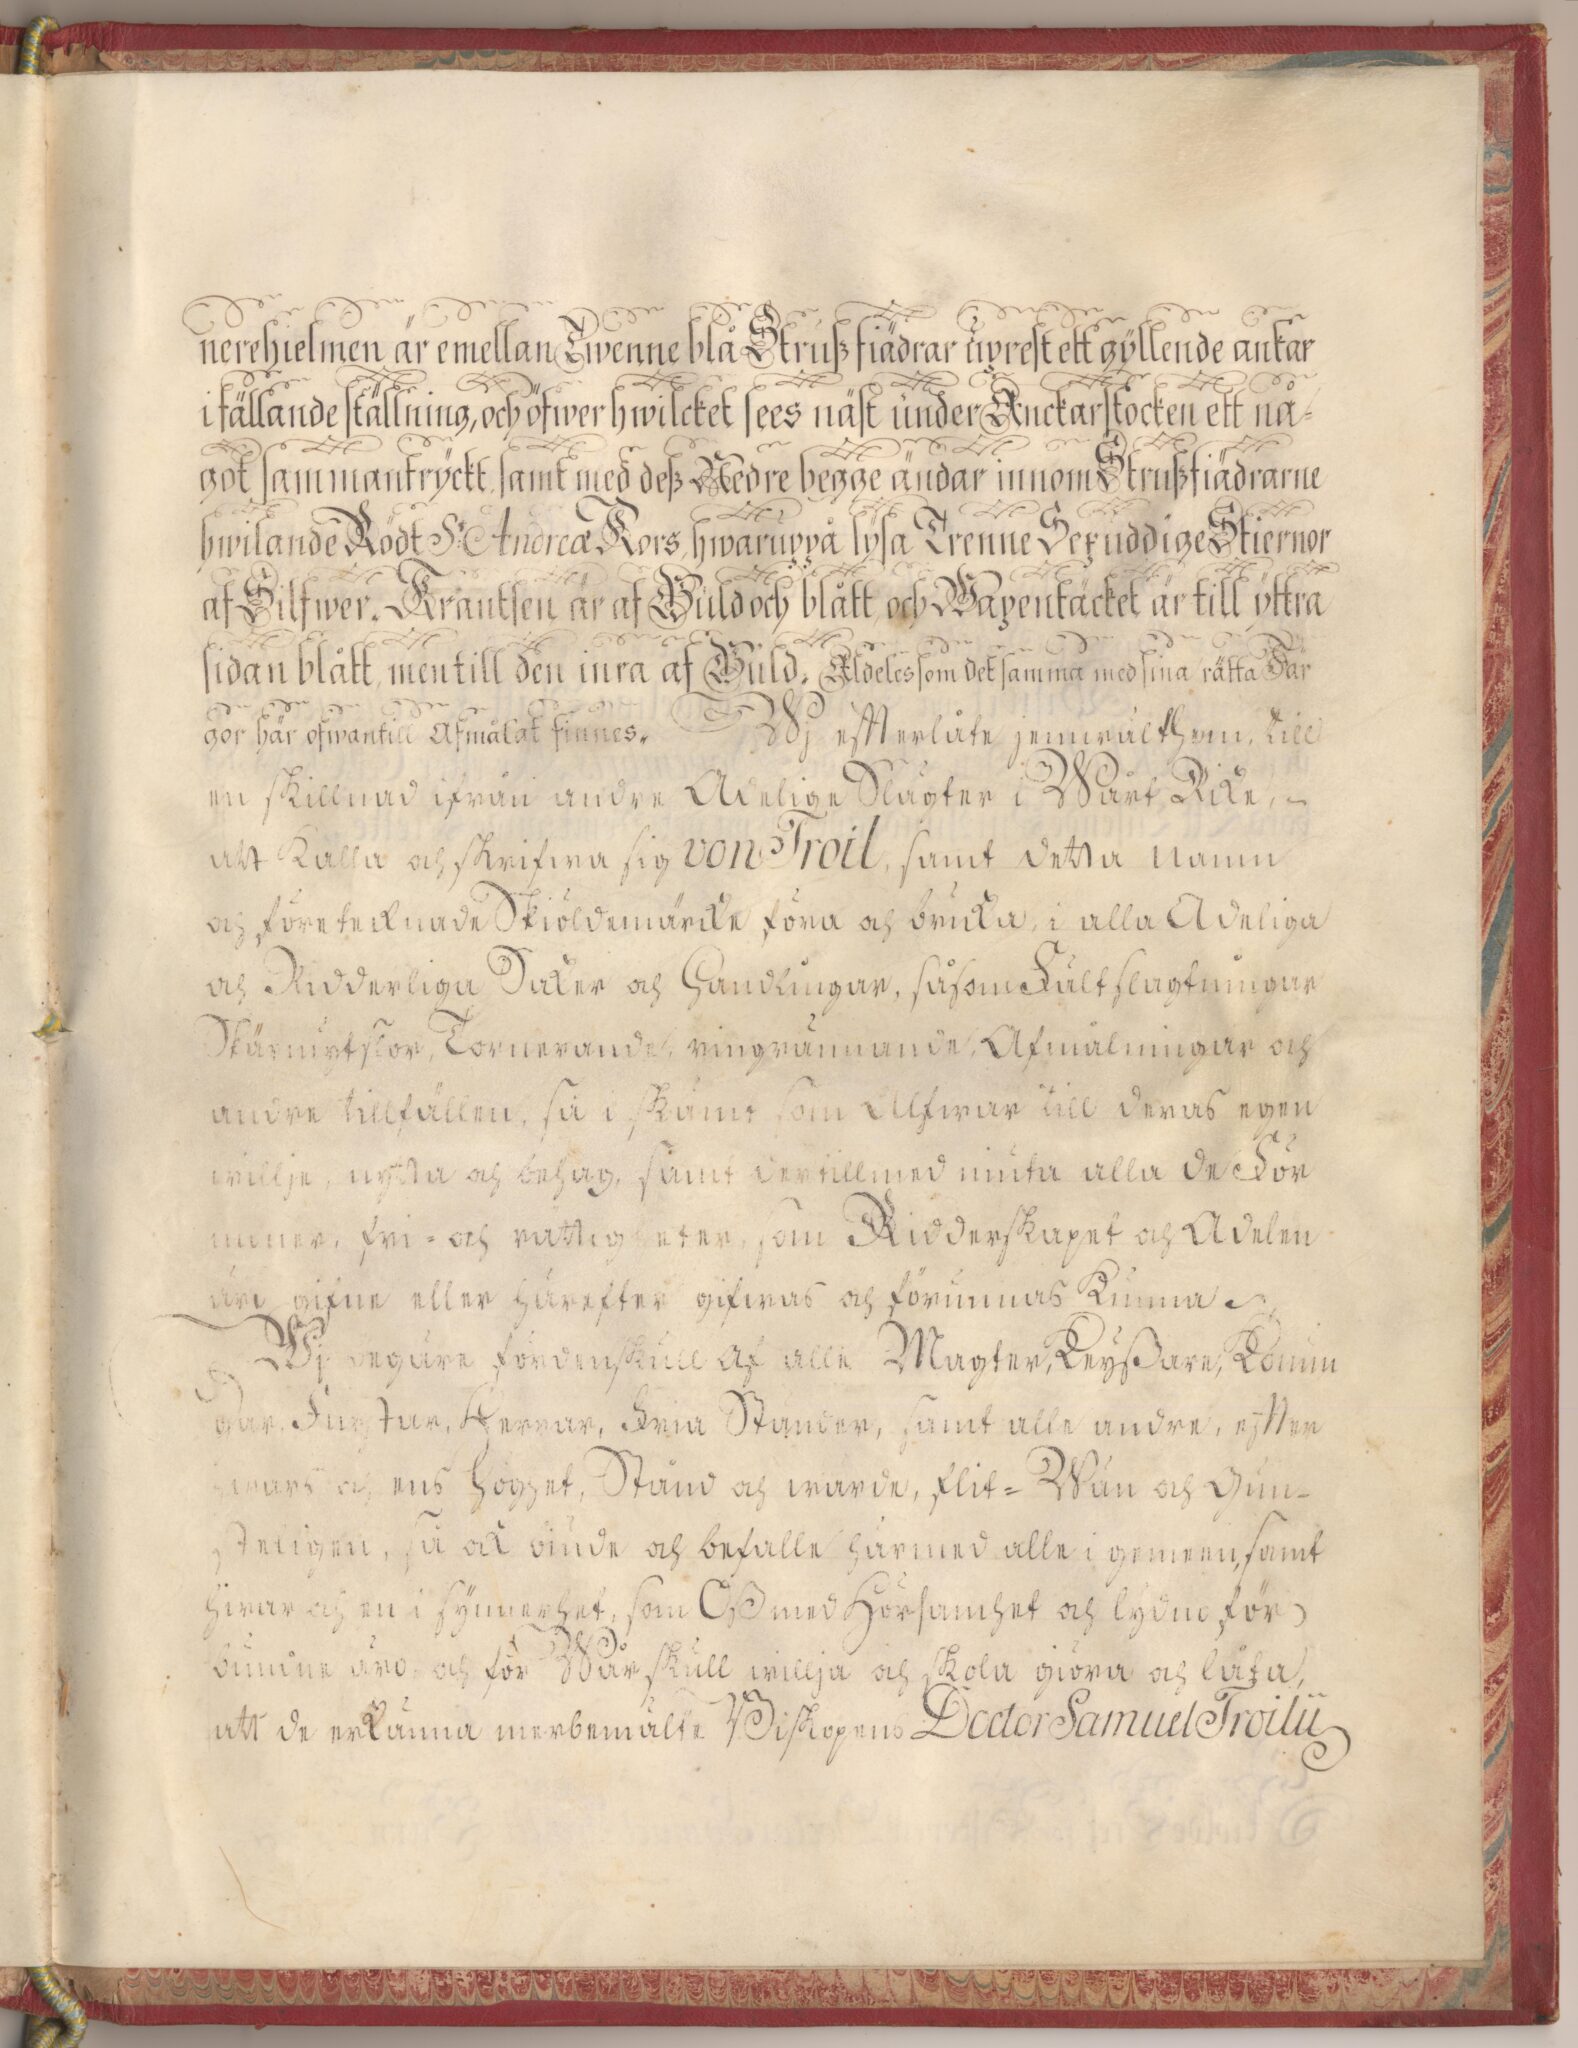 nerehielmen är emellan Twenne blå Strußfiädrar uprest ett gyllende ankar
i fällande ställning, och öfwer hwilcket sees näst under Anckarstocken ett nå-
got sammantryckt samt med deß Nedre begge ändar innom Strußfiädrarne
hwilande Rödt St Andreæ Kors, hwaruppå lysa Trenne Sexuddige Stiernor
af Silfwer. Krantsen är af Guld och blått, och Wapentäcket är till yttra
sidan blått, men till den inra af Guld. Aldeles som det samma med sina rätta Fär
gor här ofwantill Afmålat finnes. Wj efterlåte jemwäl them, till
en skillnad ifrån andre Adelige Slägter i Wårt Rike,
att kalla och skrifwa sig von Troil, samt detta namn
och företeknade Skiöldemärke föra och bruka, i alla Adeliga
och Ridderliga Saker och Handlingar, såsom Fältslagtningar
Skärmytslor, Tornerande, ringrännande, Afmålningar och
andre tillfällen, så i skämt som Alfwar till deras egen
willje, nytta och behag, samt dertillmed niuta alla de För
måner, fri- och rättigheter, som Ridderskapet och Adelen
äro gifne eller härefter gifwas och förunnas kunna
Wj begäre fördenskull af alle Magter, Keyßare, Konun
gar, Furstar, Herrar, Fria Stander, samt alle andre, efter
hwars och ens höghet, Stånd och wärde, flit- Wän och Gun-
steligen, så ock biude och befalle härmed alle i gemeen, samt
hwar och en i synnerhet, som Oß med Hörsamhet och lydno för
bundne äro, och för Wår skull willja och skola giöra och låta,
att de erkänna merbemälte Biskopens Doctor Samuel Troilii